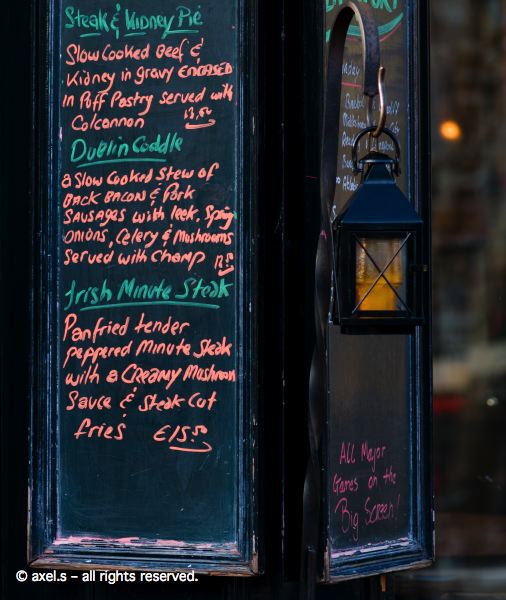 Steak & Kidney Pie
Slow Cooked Beef &
Kidney in gravy ENCASED
in Puff Pastry served with
Colcannon
Dublin Coddle
a Slow Cooked Stew of
BACK BACON & Pork
Sausages with leek, Spring
onions, Celery & Mushrooms
Served with Champ
Irish Minute Steak
Panfried tender
peppered Minute Steak
with a Creamy Mushroom
Sauce & Steak Cut
fries €15.50
All Major
Games on the
Big Screen!
© axel.s – all rights reserved.